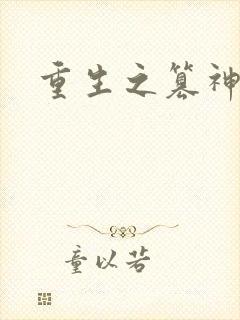 重生之篡神
童以若